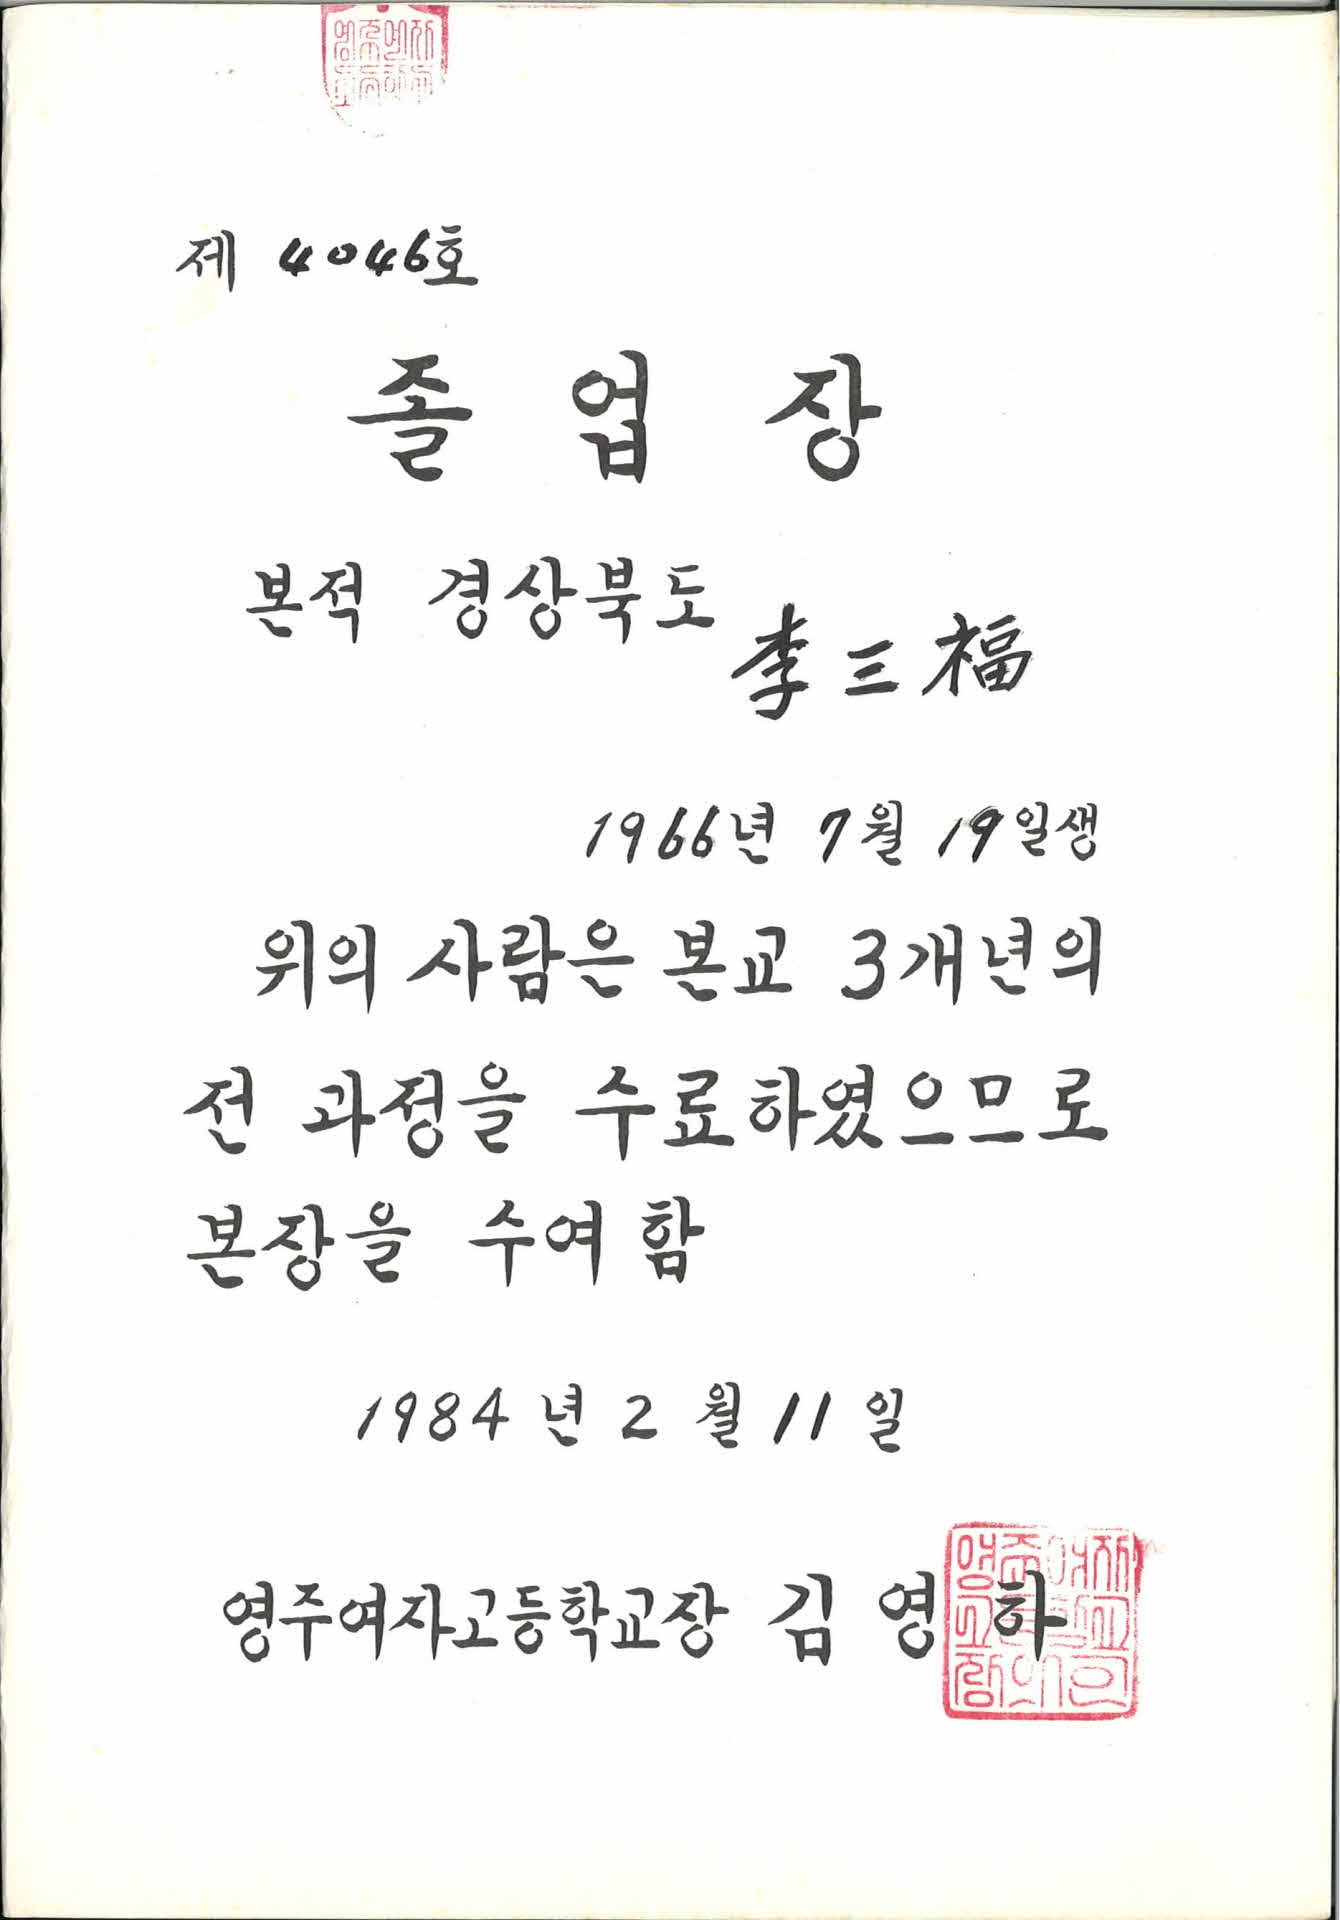 제 4046호
졸업장
본적 경상북도
李三福
1966년 7월 19일생
위의 사람은 본교 3개년의
전 과정을 수료하였으므로
본장을 수여함
1984년 2월 11일
영주여자고등학교장 김영하